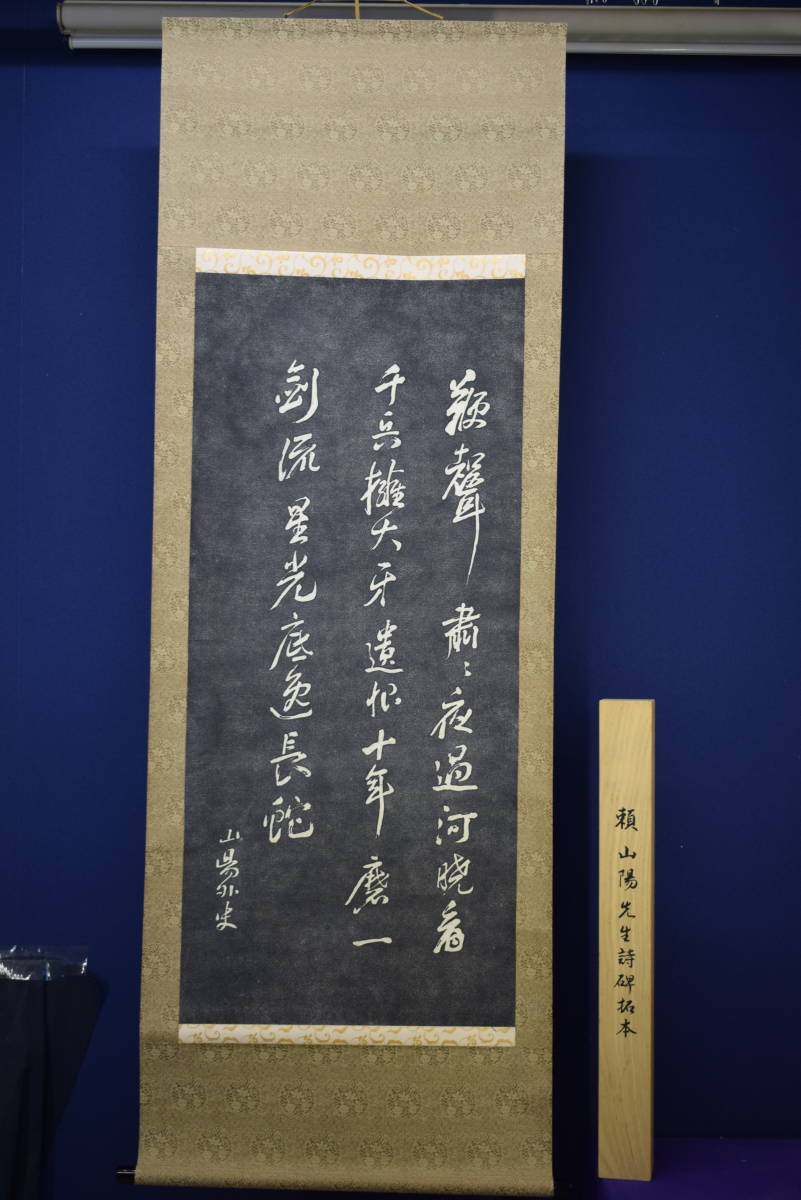 鞭聲肅〻夜過河曉看
千兵擁大牙遺恨十年磨一
劍流星光底逸長蛇
山陽外史
頼山陽先生詩碑拓本